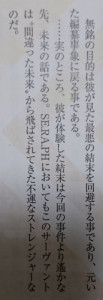 無銘の目的は彼が見た最悪の結末を回避する事であり、元い
た編纂事象に戻る事である。
……実のところ、彼が体験した結末は今回の事件より遙かな
先、未来の話である。SE.RA.PHにおいてもこのサーヴァント
は“間違った未来”から飛ばされてきた不運なストレンジャーな
のだ。